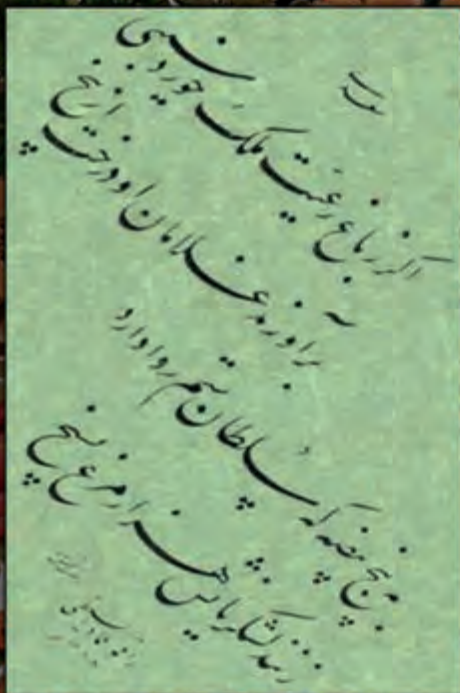 اگر ز باغ رعیت ملک خورد سیبی
برآورند غلامان او درخت از بیخ
بپنج بیضه که سلطان ستم روا دارد
زنند لشکریانش هزار مرغ بسیخ